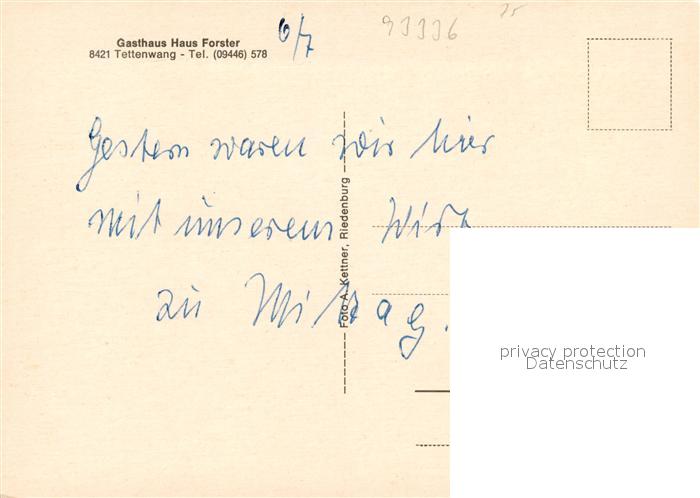 Gasthaus Haus Forster
8421 Tettenwang - Tel. (09446) 578
6/7
93336
25
Gestern waren wir hier
mit unserem Wirt
zu Mittag.
Foto A. Kettner, Riedenburg
privacy protection
Datenschutz